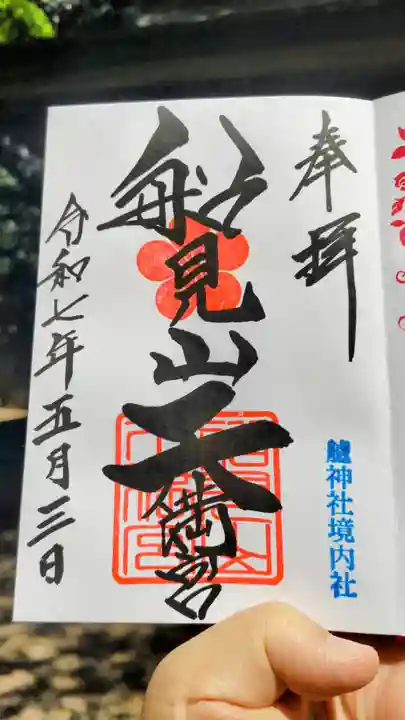 奉拝
船見山天満宮
令和七年五月三日
艫神社境内社